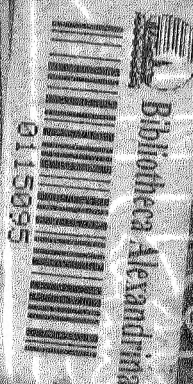 Bibliotheca Alexandrina
0115095